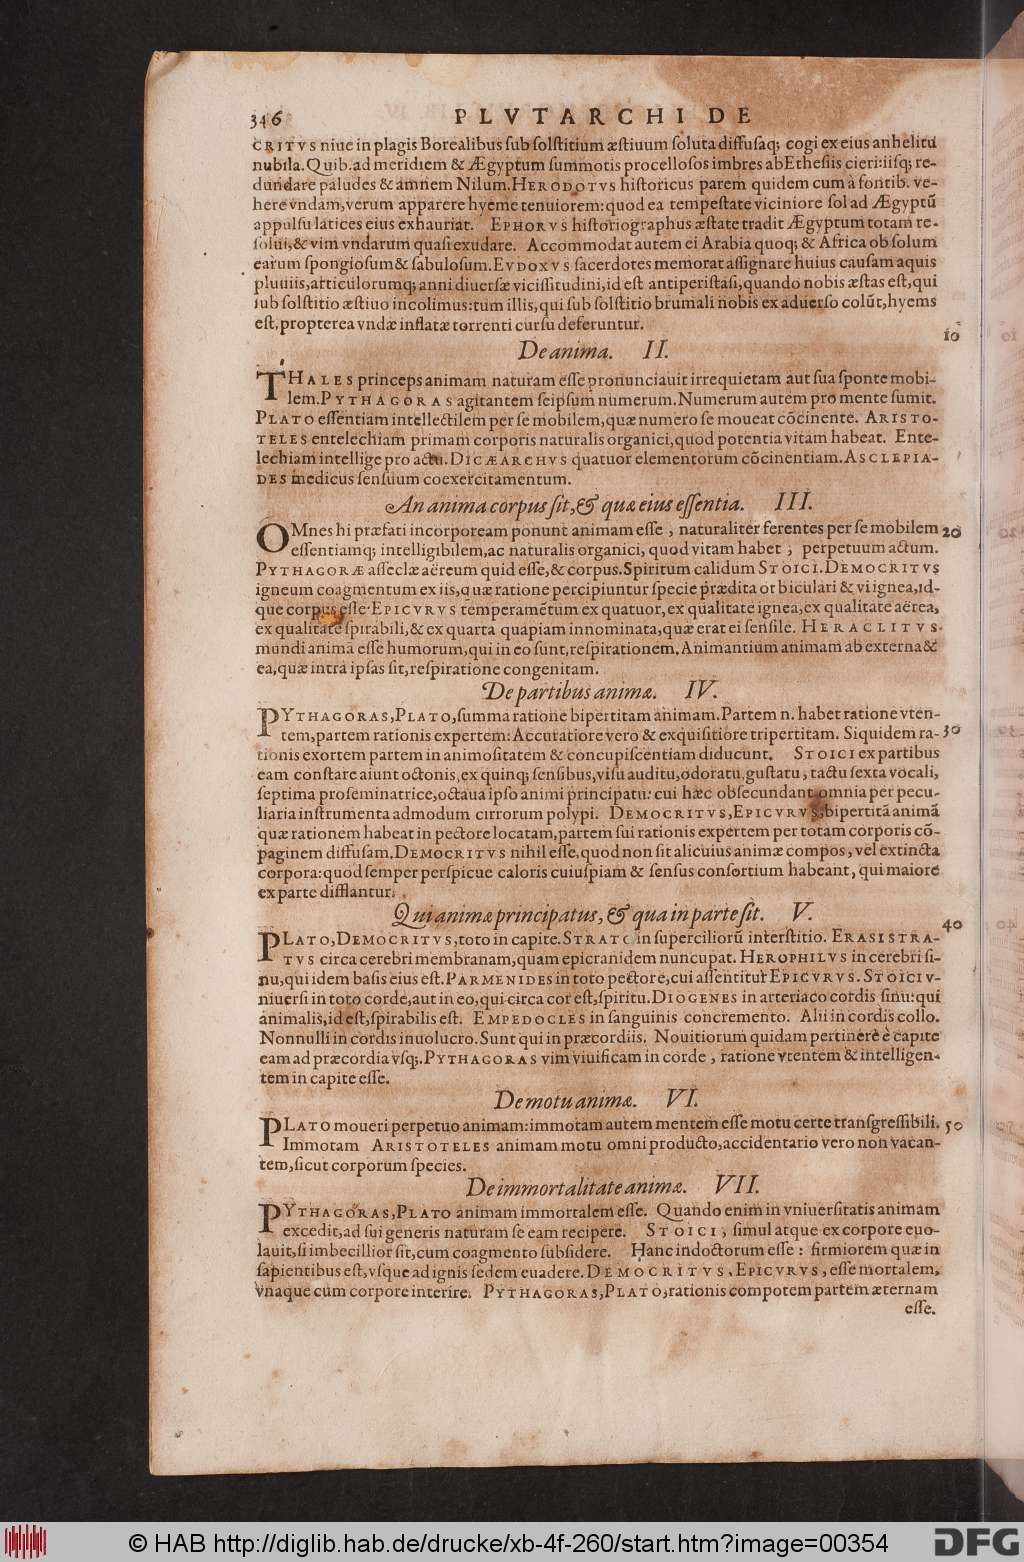 346 PLVTARCHI DE
CRITVS niue in plagis Borealibus sub solstitium æstiuum soluta diffusaq; cogi ex eius anhelitu
nubila. Quib. ad meridiem & Ægyptum summotis procellosos imbres ab Ethesiis cieri: iisq; re-
dundare paludes & amnem Nilum. HERODOTVS historicus parem quidem cum à fontib. ve-
here vndam, verum apparere hyeme tenuiorem: quod ea tempestate viciniore sol ad Ægyptū
appulsu latices eius exhauriat. EPHORVS historiographus æstate tradit Ægyptum totam re-
solui, & vim vndarum quasi exudare. Accommodat autem ei Arabia quoq; & Africa ob solum
earum spongiosum & sabulosum. EVDOXVS sacerdotes memorat assignare huius causam aquis
pluuiis, articulorumq; anni diuersæ vicissitudini, id est antiperistasi, quando nobis æstas est, qui
sub solstitio æstiuo incolimus: tum illis, qui sub solstitio brumali nobis ex aduerso colūt, hyems
est, propterea vndæ inflatæ torrenti cursu deferuntur.
10
De anima. II.
THALES princeps animam naturam esse pronunciauit irrequietam aut sua sponte mobi-
lem. PYTHAGORAS agitantem seipsum numerum. Numerum autem pro mente sumit.
PLATO essentiam intellectilem per se mobilem, quæ numero se moueat cōcinente. ARISTO-
TELES entelechiam primam corporis naturalis organici, quod potentia vitam habeat. Ente-
lechiam intellige pro actu. DICÆARCHVS quatuor elementorum cōcinentiam. ASCLEPIA-
DES medicus sensuum coexercitamentum.
An anima corpus sit, & quæ eius essentia. III.
OMnes hi præfati incorpoream ponunt animam esse, naturaliter ferentes per se mobilem 20
essentiamq; intelligibilem, ac naturalis organici, quod vitam habet, perpetuum actum.
PYTHAGORÆ asseclæ aëreum quid esse, & corpus. Spiritum calidum STOICI. DEMOCRITVS
igneum coagmentum ex iis, quæ ratione percipiuntur specie prædita orbiculari & vi ignea, id-
que corpus esse. EPICVRVS temperamētum ex quatuor, ex qualitate ignea, ex qualitate aërea,
ex qualitate spirabili, & ex quarta quapiam innominata, quæ erat ei sensile. HERACLITVS
mundi animā esse humorum, qui in eo sunt, respirationem. Animantium animam ab externa &
ea, quæ intra ipsas sit, respiratione congenitam.
De partibus animæ. IV.
PYTHAGORAS, PLATO, summa ratione bipertitam animam. Partem n. habet ratione vten-
tem, partem rationis expertem: Accuratiore vero & exquisitiore tripertitam. Siquidem ra- 30
tionis exortem partem in animositatem & concupiscentiam diducunt. STOICI ex partibus
eam constare aiunt octonis, ex quinq; sensibus, visu auditu, odoratu, gustatu, tactu sexta vocali,
septima proseminatrice, octaua ipso animi principatu: cui hæc obsecundant omnia per pecu-
liaria instrumenta admodum cirrorum polypi. DEMOCRITVS, EPICVRVS, bipertitā animā
quæ rationem habeat in pectore locatam, partem sui rationis expertem per totam corporis cō-
paginem diffusam. DEMOCRITVS nihil esse, quod non sit alicuius animæ compos, vel extincta
corpora: quod semper perspicue caloris cuiuspiam & sensus consortium habeant, qui maiore
ex parte difflantur.
Qui animæ principatus, & qua in parte sit. V.
40
PLATO, DEMOCRITVS, toto in capite. STRATO in superciliorū interstitio. ERASISTRA-
TVS circa cerebri membranam, quam epicranidem nuncupat. HEROPHILVS in cerebri si-
nu, qui idem basis eius est. PARMENIDES in toto pectore, cui assentitur EPICVRVS. STOICI v-
niuersi in toto corde, aut in eo, qui circa cor est, spiritu. DIOGENES in arteriaco cordis sinu: qui
animalis, id est, spirabilis est. EMPEDOCLES in sanguinis concremento. Alii in cordis collo.
Nonnulli in cordis inuolucro. Sunt qui in præcordiis. Nouitiorum quidam pertinere è capite
eam ad præcordia vsq;. PYTHAGORAS vim viuificam in corde, ratione vtentem & intelligen-
tem in capite esse.
De motu animæ. VI.
PLATO moueri perpetuo animam: immotam autem mentem esse motu certe transgressibili. 50
Immotam ARISTOTELES animam motu omni producto, accidentario vero non vacan-
tem, sicut corporum species.
De immortalitate animæ. VII.
PYTHAGORAS, PLATO animam immortalem esse. Quando enim in vniuersitatis animam
excedit, ad sui generis naturam se eam recipere. STOICI, simul atque ex corpore euo-
lauit, si imbecillior sit, cum coagmento subsidere. Hanc indoctorum esse: firmiorem quæ in
sapientibus est, vsque ad ignis sedem euadere. DEMOCRITVS, EPICVRVS, esse mortalem,
vnaque cum corpore interire. PYTHAGORAS, PLATO, rationis compotem partem æternam
esse.
© HAB http://diglib.hab.de/drucke/xb-4f-260/start.htm?image=00354
DFG